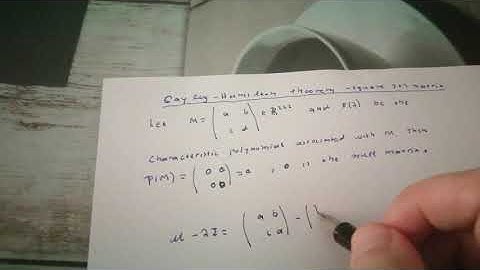 Cayley-Hamilton theorem - square 2x2 matrix
Let M = (a b
c d) ∈ R^{2x2} and P(λ) be the
characteristic polynomial associated with M, then
P(M) = (0 0
0 0) = 0 , 0 is the null matrix.
M - λI = (a b
c d) - (